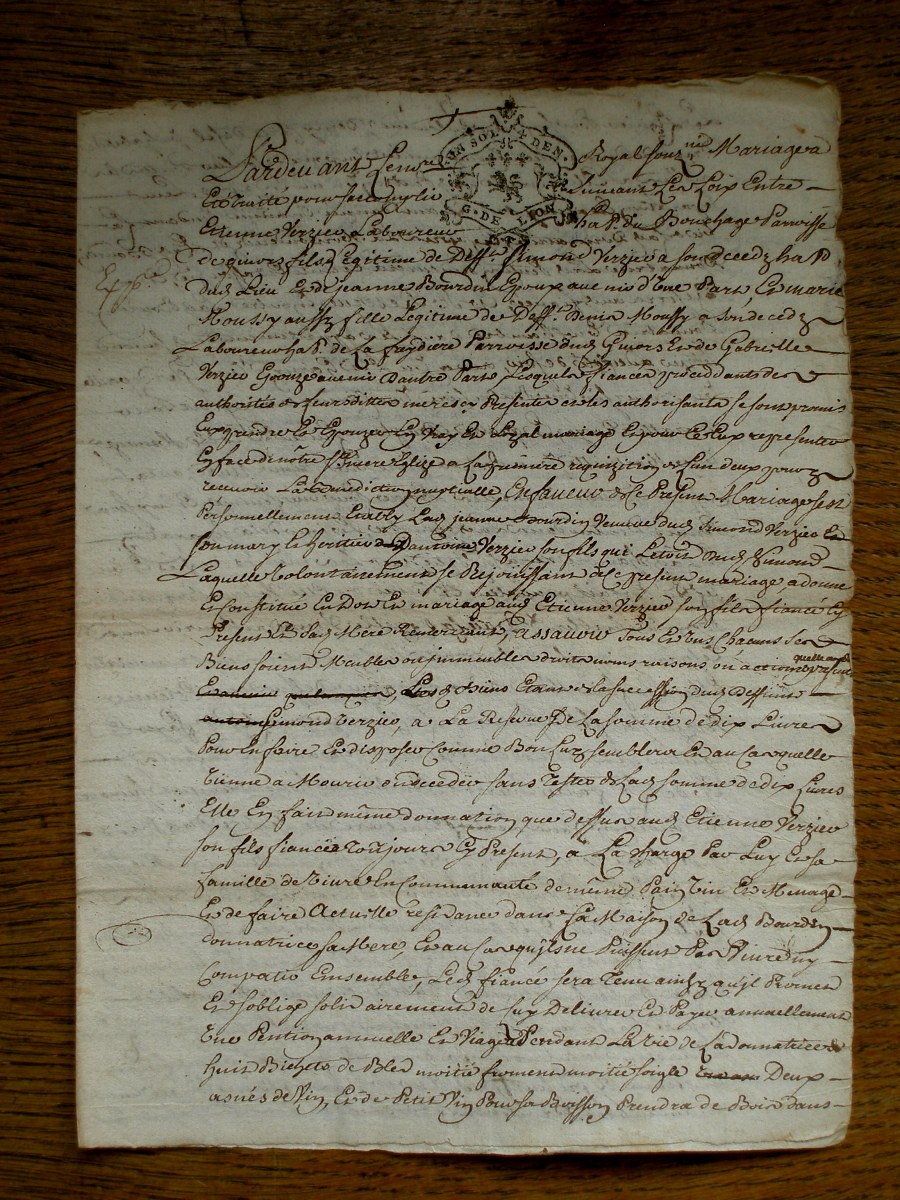 Pardevant Le no.re Royal souz.né Mariage a
Eté traité pour s'accomplir Suivant Les Loix Entre
ON SOL 4 DEN.
G. DE LION
Etienne Verzieu Laboureur ha.t du Bouchage Parroisse
de givors fils Legitime de Deff.t Simond Verzieu a son deceds hat
dud. Lieu Et de jeanne Bourdin Epoux avenir d'Une Part, Et marie
Moussy aussy fille Legitime de Deff.t denis Moussy a son deceds
Laboureur hat. de La faydiere Parroisse dud. Givors Et de Gabrielle
Verzieu Epouze avenir d'autre Part, Lesquels fiancés proceddants des
authorités de leurs dittes meres cy Presentes et les authorisants se sont promis
Exp.é
se prendre Et Epouzer En Vray Et Loyal mariage Et pour Ce Eux representer
En face de nôtre S.te mere Eglize a La premiere requizition de l'un deux pour y
recevoir La Benediction nuptialle, En faveur de Ce Present Mariage s'est
Personnellement Etably Lad. jeanne Bourdin Veuve dud. Simond Verzieu Et
son mary heritier d'antoine Verzieu son fils qui L'etoit dud. Simond
Laquelle Volontairement se Rejouissant de Ce present mariage a donné
Et Constitué En Dot Et mariage aud. Etienne Verzieu son fils fiancé Cy
Present Et Sad. Mere Remerciant, assavoir Tous Et Uns Chacuns Ses
Biens soient Meubles ou jmmeubles droits noms raisons ou actions
Lesd. Biens Etant de la succession dud. deffunt
Simond Verzieu, a La Reserve de La somme de dix Livres
Pour En faire Et disposer Comme Bon Luy semblera Et au Cas qu'elle
Vienne a Mourir ou decedder sans Tester de Lad. somme de dix Livres
Elle En fait même donnation que dessus aud. Etienne Verzieu
son fils fiancé Toujours Cy Present, a La Charge Par Luy Et sa
famille de Vivre En Communauté de même Pain Vin Et Menage
Et de faire Actuelle residance dans La Maison de Lad. Bourdin
donnatrice sa Mere, Et au Cas qu'ils ne Puissent Pas Vivre ny
Compatir Ensemble, Led. fiancé sera Tenu ainsy qu'jl Promet
Et s'oblige solidairement de luy Delivrer Et Payer annuellement
Une Pention annuelle Et Viagere Pendant La vie de La donnatrice de
huit Bichets de Bled moitié froment moitié soigle Deux
asnés de Vin, Et de Petit Vin Pour sa Boisson Prendra de Bois dans